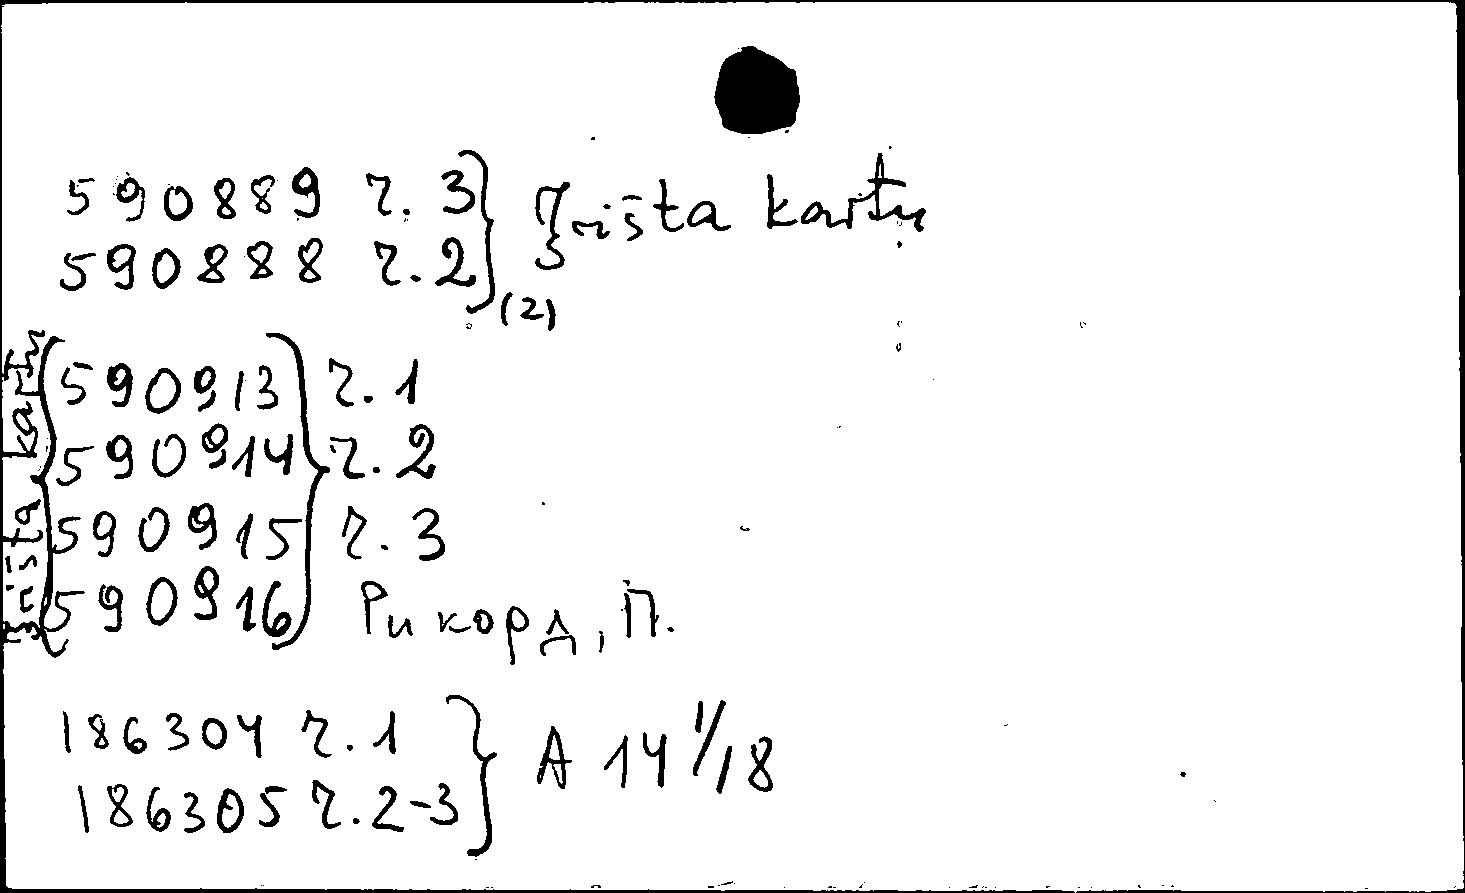 590889 ч. 3
590888 ч. 2
(2)
590913 ч. 1
590914 ч. 2
590915 ч. 3
590916 Рикорд, П.
186304 ч. 1
186305 ч. 2-3
А 14 1/18